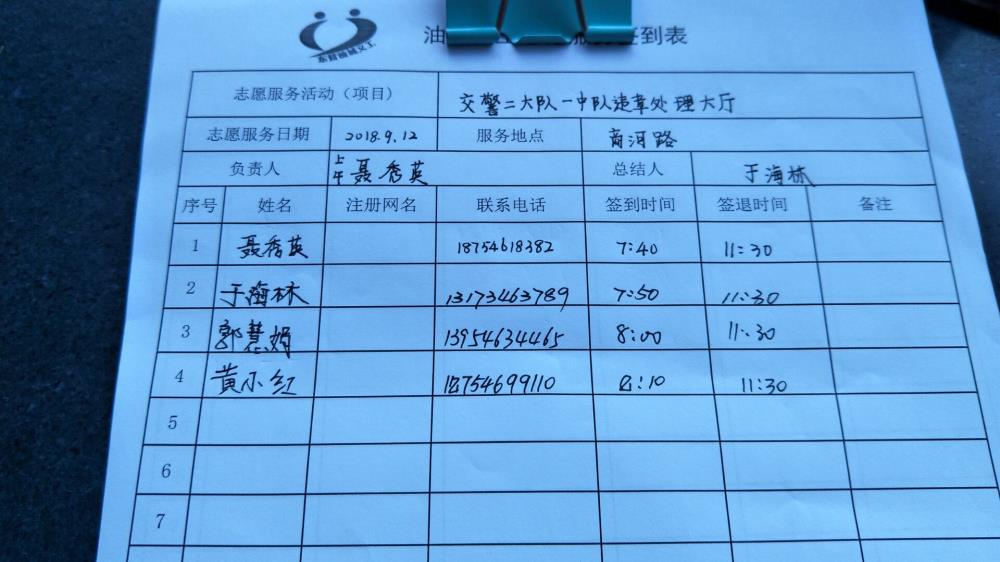 东营油城义工
油 签到表
志愿服务活动（项目） 交警二大队一中队违章处理大厅
志愿服务日期 2018.9.12 服务地点 商河路
负责人 上午聂秀英 总结人 于海林
序号 姓名 注册网名 联系电话 签到时间 签退时间 备注
1 聂秀英 18754618382 7:40 11:30
2 于海林 13173463789 7:50 11:30
3 郭慧娟 13954634465 8:00 11:30
4 黄小红 18754699110 8:10 11:30
5
6
7